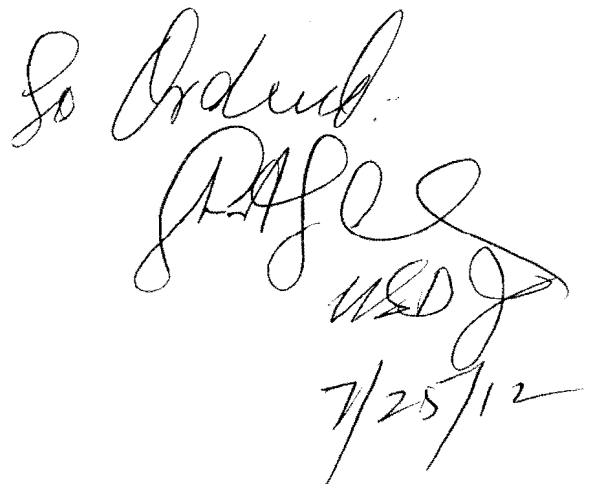 So Ordered.
USDJ
7/25/12